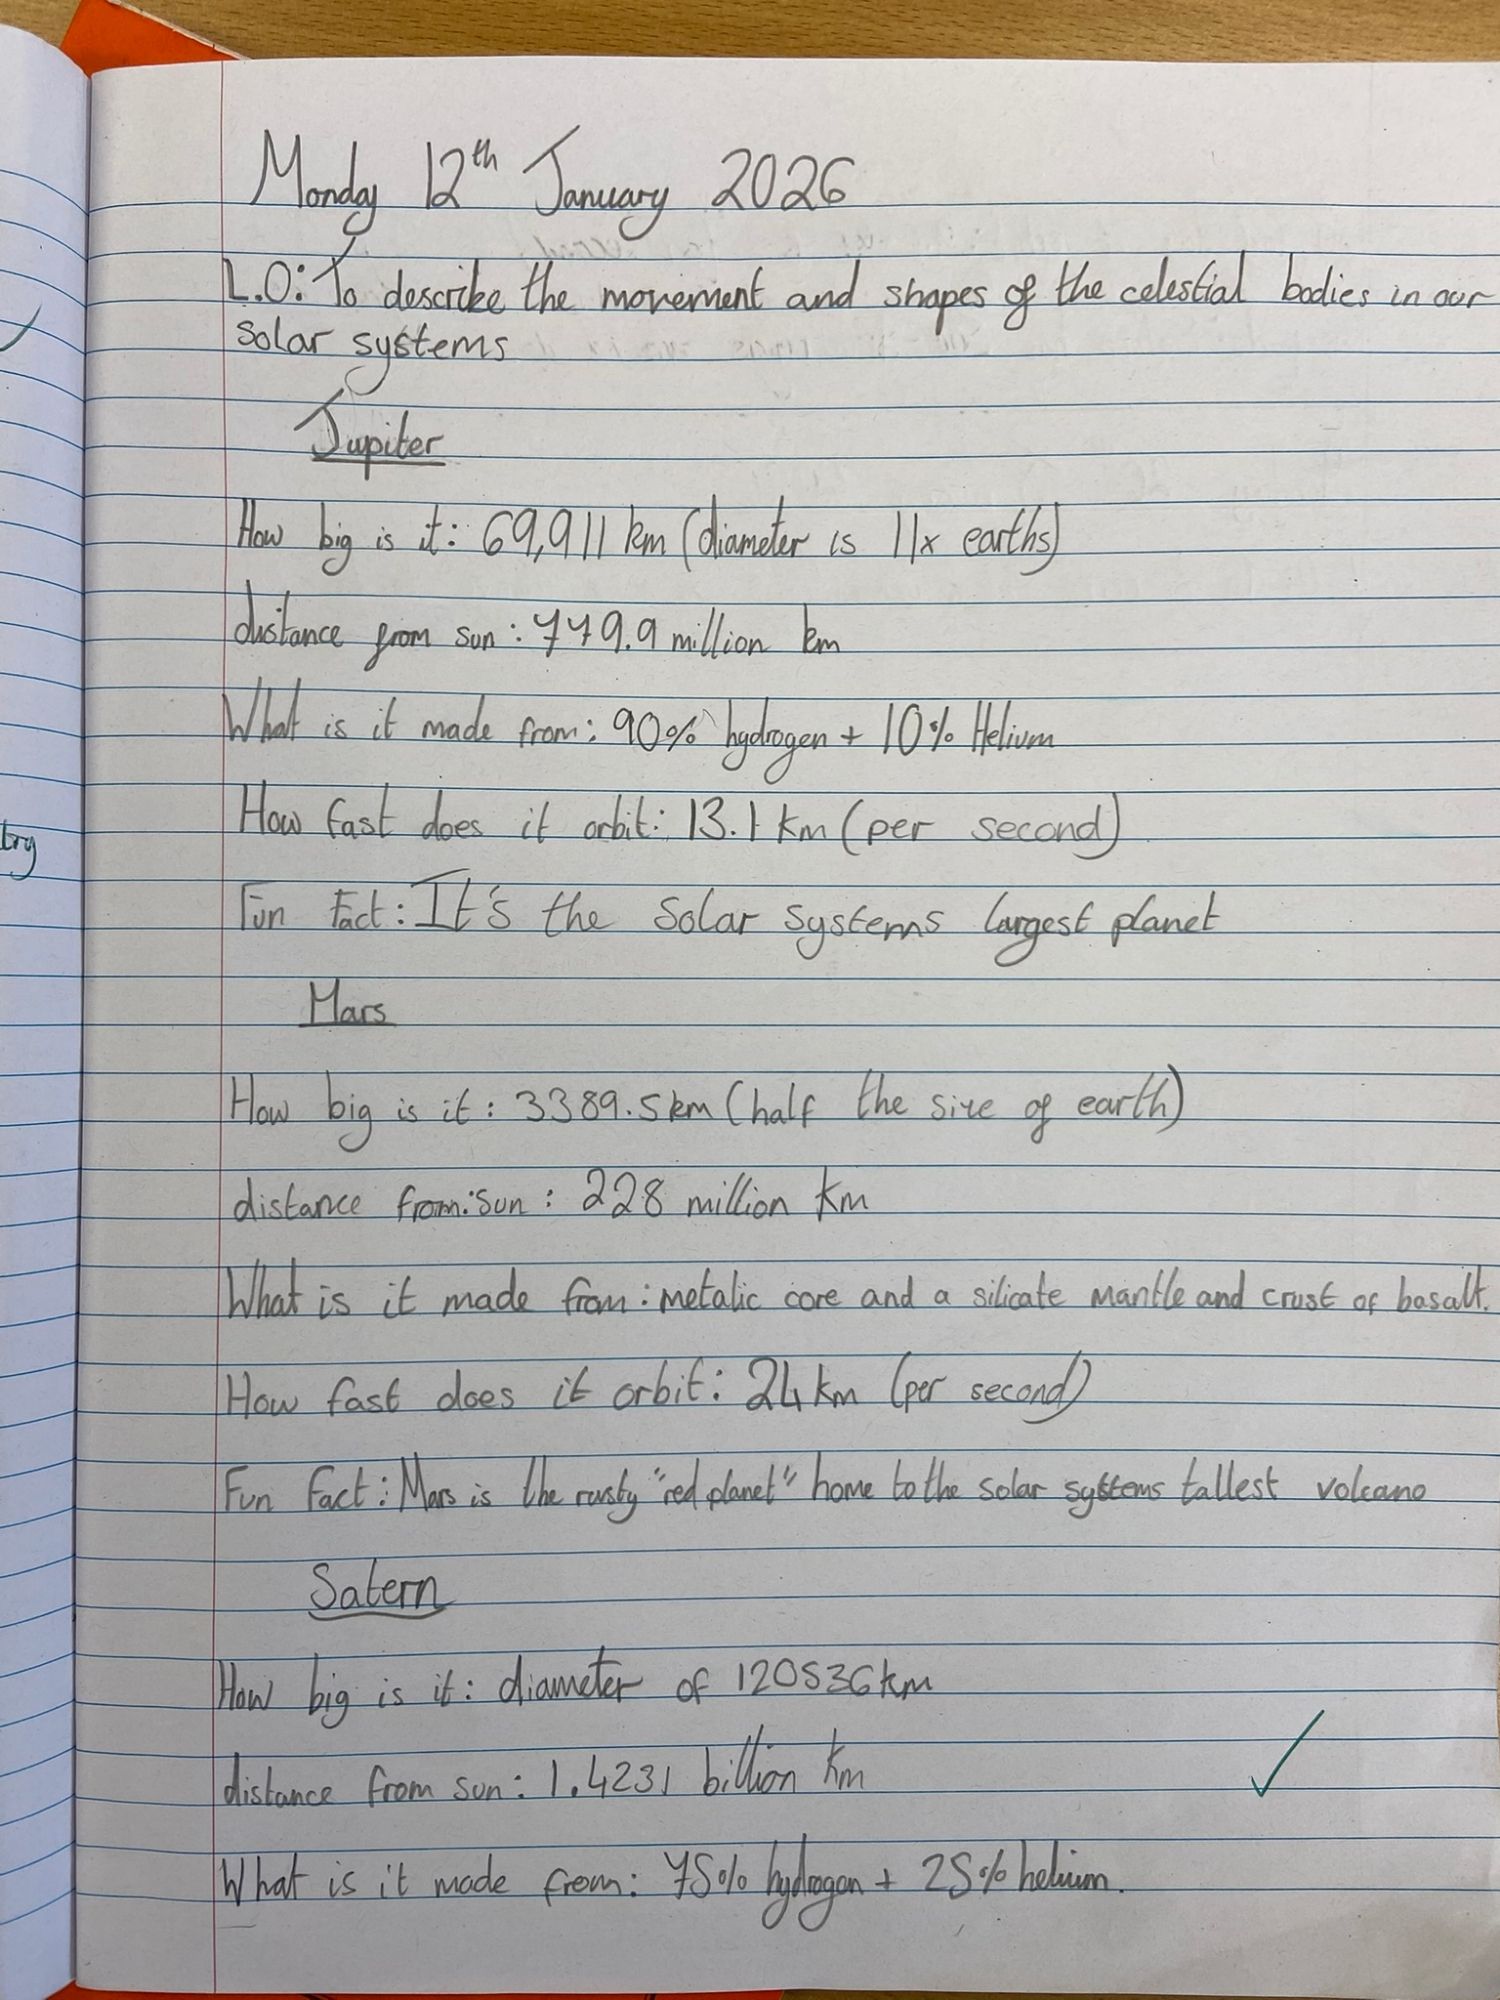 Monday 12th January 2026
L.O: To describe the movement and shapes of the celestial bodies in our
solar systems
Jupiter
How big is it: 69,911 km (diameter is 11x earths)
distance from sun: 779.9 million km
What is it made from: 90% hydrogen + 10% Helium
How fast does it orbit: 13.1 km (per second)
try
Fun Fact: It's the solar systems largest planet
Mars
How big is it: 3389.5km (half the size of earth)
distance from: sun: 228 million km
What is it made from: metalic core and a silicate mantle and crust of basalt.
How fast does it orbit: 24 km (per second)
Fun fact: Mars is the rusty "red planet" home to the solar systems tallest volcano
Satern
How big is it: diameter of 120536km
distance from sun: 1.4231 billion km
What is it made from: 75% hydrogen + 25% helium.